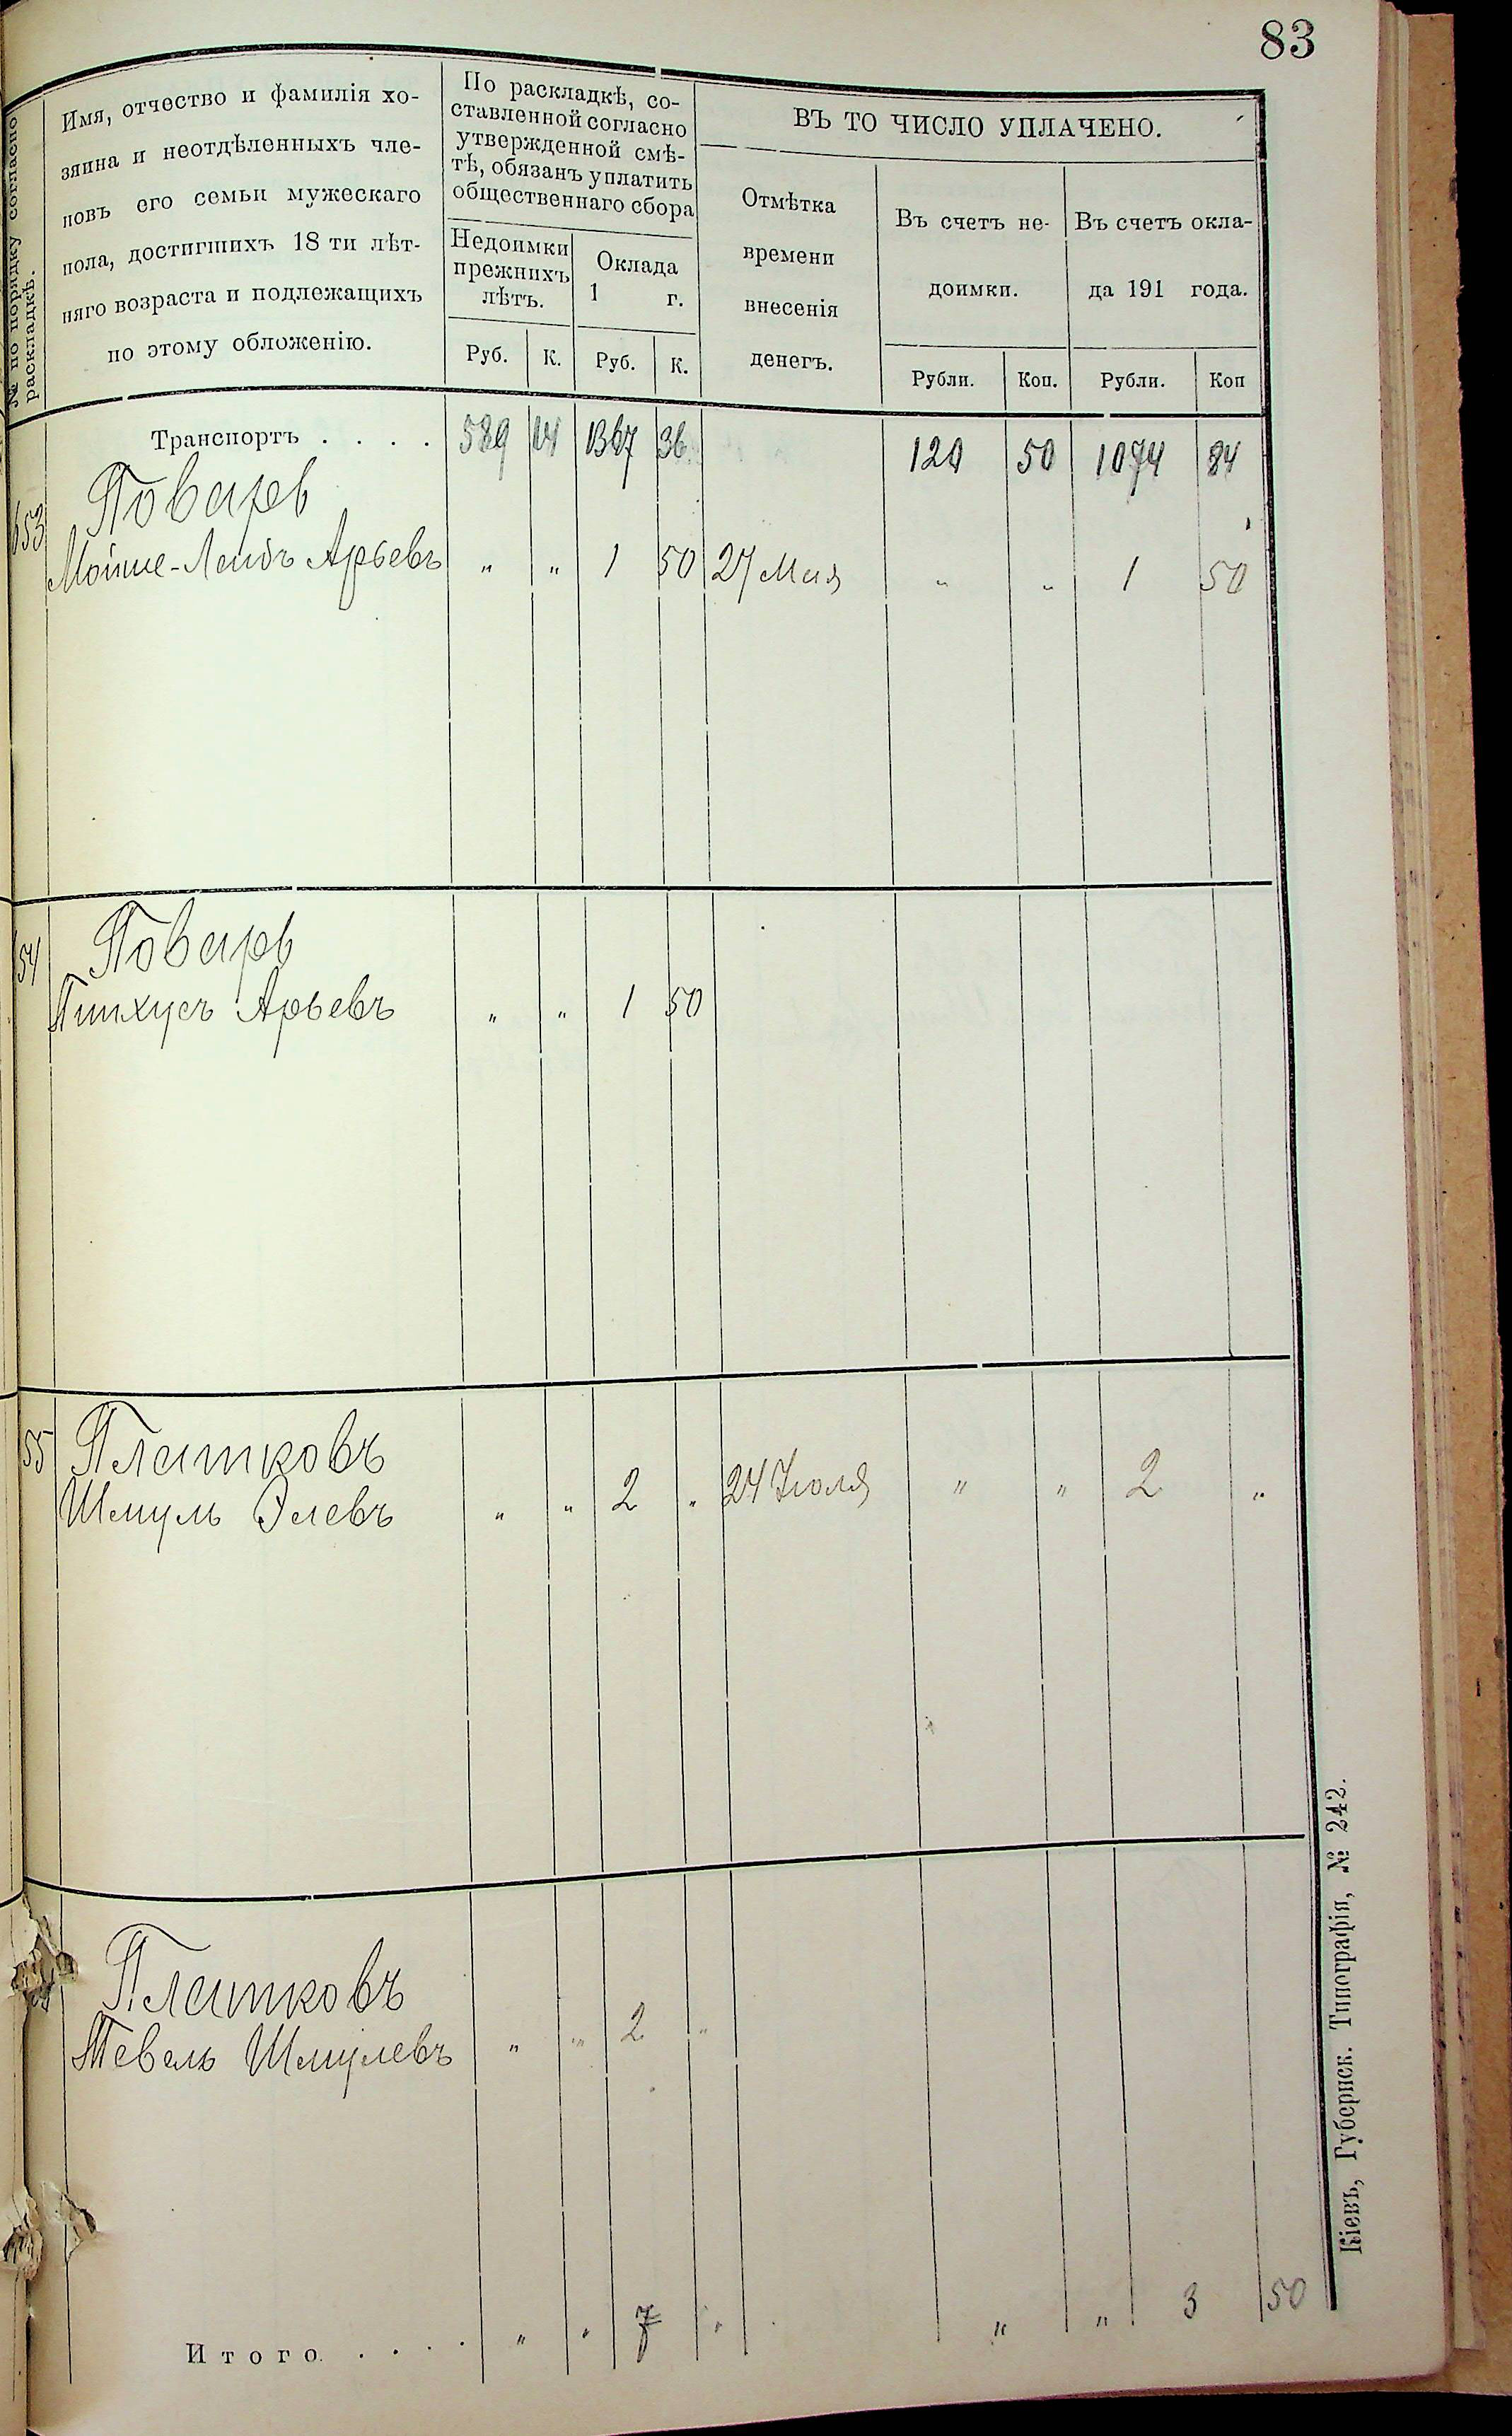 83
№ по порядку согласно раскладкѣ.
Имя, отчество и фамилія хо-
зяина и неотдѣленныхъ чле-
новъ его семьи мужескаго
пола, достигшихъ 18 ти лѣт-
няго возраста и подлежащихъ
по этому обложенію.
По раскладкѣ, со-
ставленной согласно
утвержденной смѣ-
тѣ, обязанъ уплатить
общественнаго сбора
Недоимки
прежнихъ
лѣтъ.
Оклада
1 г.
Руб. К. Руб. К.
ВЪ ТО ЧИСЛО УПЛАЧЕНО.
Отмѣтка
времени
внесенія
денегъ.
Въ счетъ не-
доимки.
Въ счетъ окла-
да 191 года.
Рубли. Коп. Рубли. Коп
Транспортъ . . . . 1367 36 120 50 1074 84
Поваръ
653 Мойше-Лейбъ Арьевъ " " 1 50 27 Мая " " 1 50
Поваръ
54 Пинхусъ Арьевъ " " 1 50
55 Платковъ
Шмуль Элевъ " " 2 " 24 Іюля " " 2 "
Платковъ
Тевель Шмулевъ " " 2 "
Итого . . . . " " 7 " " " 3 50
Кіевъ, Губернск. Типографія, № 242.